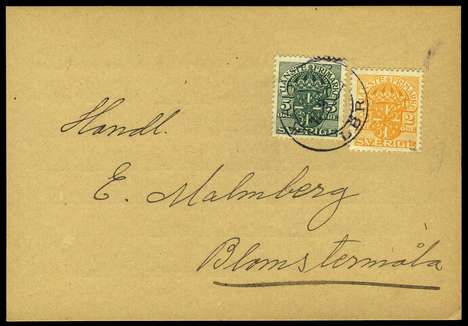 TJÄNSTEFRIMÄRKE
5 ÖRE
SVERIGE
TJÄNSTEFRIMÄRKE
2 ÖRE
SVERIGE
LBR
Handl.
E. Malmberg
Blomstermåla